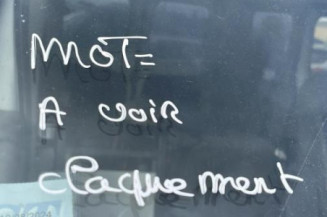 MOT=
A voir
claquement